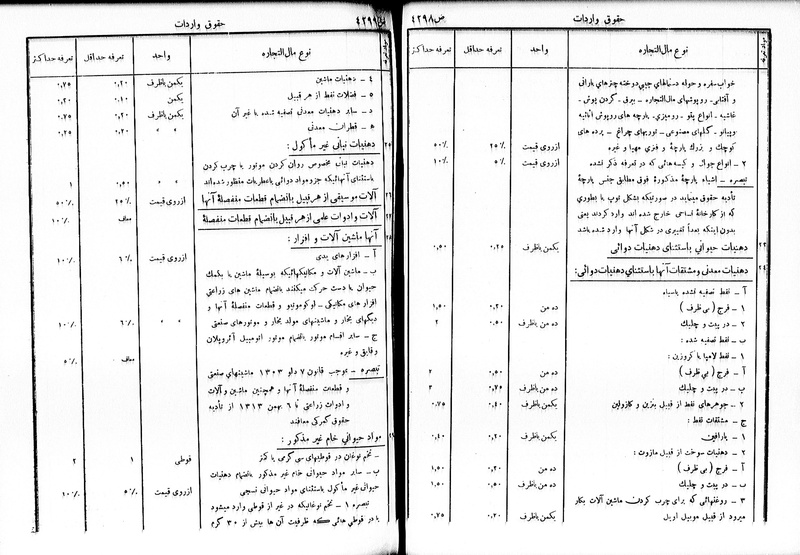 ص۴۲۹۸
حقوق واردات
مواد تعرفه
نوع مال‌التجاره
واحد
تعرفه حداقل
تعرفه حداکثر
خواب سفره و حوله دستمالهای جیبی دوخته چترهای بارانی
و آفتابی ـ روپوشهای مال‌التجاره ـ بیرق ـ گردن پوش ـ
غاشیه ـ انواع پتو ـ رومیزی ـ پارچه های روپوش اثاثیه
وپیانو ـ گلهای مصنوعی ـ توریهای چراغ ـ پرده های
کوچک و بزرك پارچهٔ و فنری مهیا و غیره
ازروی قیمت ۲۵٪ ۵۰٪
۲ ـ انواع جوال و کیسه‌هائی که در تعرفه ذکر نشده
ازروی قیمت ۵٪ ۱۰٪
تبصره ـ اشیاء پارچهٔ مذکورهٔ فوق مطابق جنس پارچهٔ
تأدیه حقوق مینماید در صورتیکه بشکل توپ یا بطوری
که از کارخانهٔ نساجی خارج شده اند وارد گردند یعنی
بدون اینکه بعداً تغییری در شکل آنها وارد شده باشد
۲۳ دهنیات حیوانی باستثنای دهنیات دوائی یکمن باظرف ۰٫۲۵ ۰٫۵۰
۲۴ دهنیات معدنی و مشتقات آنها باستثنای دهنیات دوائی:
آ ـ نفط تصفیه نشده یاسیاه
۱ ـ فرج ( بی ظرف ) ده من ۰٫۴۰ ۱٫۵۰
۲ ـ در پیت و چلیك ده من باظرف ۰٫۵۰ ۲
ب ـ نفط تصفیه شده :
۱ ـ نفط لامپا یا کروزین :
آ ـ فرج ( بی ظرف ) ده من ۰٫۵۰ ۲
ب ـ در پیت و چلیك ده من باظرف ۰٫۷۵ ۳
۲ ـ جوهرهای نفط از قبیل بنزین و گازولین یکمن باظرف ۰٫۴۰ ۰٫۷۵
ج ـ مشتقات نفط :
۱ ـ پارافین یکمن باظرف ۰٫۲۰ ۰٫۴۰
۲ ـ دهنیات سوخت از قبیل مازوت :
آ ـ فرج ( بی ظرف ) ده من ۰٫۲۰ ۱٫۵۰
ب ـ در پیت و چلیك ده من باظرف ۰٫۵۰ ۱٫۵۰
۳ ـ روغنهائی که برای چرب کردن ماشین آلات بکار
میرود از قبیل موبیل اویل یکمن باظرف ۰٫۲۰ ۰٫۷۵
ص۴۲۹۹
حقوق واردات
مواد تعرفه
نوع مال‌التجاره
واحد
تعرفه حداقل
تعرفه حداکثر
۴ ـ دهنیات ماشین یکمن باظرف ۰٫۲۰ ۰٫۷۵
۵ ـ فضلات نفط از هر قبیل یکمن ۰٫۱۰ ۰٫۲۰
د ـ سایر دهنیات معدنی تصفیه شده یا غیر آن یکمن باظرف ۰٫۲۰ ۰٫۷۵
ه ـ قطران معدنی » » ۰٫۲۰ ۰٫۲۵
۲۵ دهنیات نباتی غیر مأکول :
دهنیات نباتی مخصوص روان کردن موتور یا چرب کردن
باستثنای آنهائیکه جزو مواد دوائی یاعطریات منظور شده‌اند » » ۰٫۵۰ ۱
۲۶ آلات موسیقی از هر قبیل بانضمام قطعات منفصلهٔ آنها ازروی قیمت ۲۵٪ ۵۰٪
۲۷ آلات و ادوات علمی از هر قبیل بانضمام قطعات منفصلهٔ آنها معاف ۱۰٪
۲۸ ماشین آلات و افزار :
آ ـ افزارهای یدی ازروی قیمت ۶٪ ۱۰٪
ب ـ ماشین آلات و مکانیکهائیکه بوسیلهٔ ماشین یا بکمك
حیوان یا دست حرکت میکنند بانضمام ماشین های زراعتی
افزار های مکانیکی ـ لوکوموتیو و قطعات منفصلهٔ آنها و
دیگهای بخار و ماشینهای مولد بخار و موتورهای صنعتی » » ۶٪ ۱۰٪
ج ـ سایر اقسام موتور بانضمام موتور اتومبیل آئروپلان
وقایق و غیره معاف ۵٪
تبصره ـ بموجب قانون ۷ دلو ۱۳۰۳ ماشینهای صنعتی
و قطعات منفصلهٔ آنها و همچنین ماشین و آلات
و ادوات زراعتی تا ۶ بهمن ۱۳۱۳ از تأدیه
حقوق گمرکی معافند
مواد حیوانی خام غیر مذکور :
آ ـ تخم نوغان در قوطیهای سی گرمی یا کمتر قوطی ۱ ۲
ب ـ سایر مواد حیوانی خام غیر مذکور بانضمام دهنیات
حیوانی غیر مأکول باستثنای مواد حیوانی نسجی ازروی قیمت ۵٪ ۱۰٪
تبصره ۱ ـ تخم نوغانیکه در غیر از قوطی وارد میشود
یا در قوطی هائی که ظرفیت آن ها بیش از ۳۰ گرم